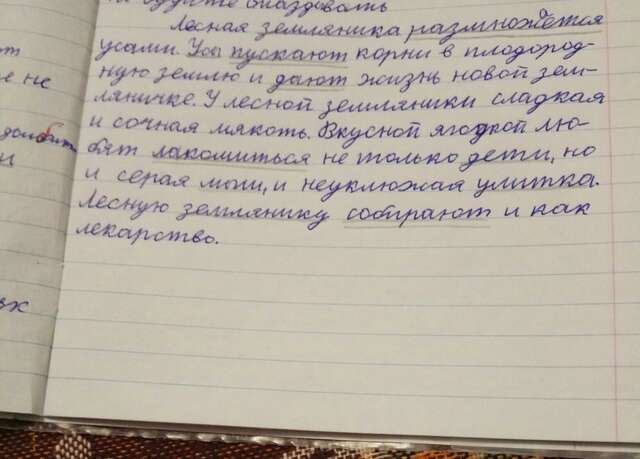 не будите опаздовать
Лесная земляника размножается
усами. Усы пускают корни в плодород-
ную землю и дают жизнь новой зем-
ляничке. У лесной земляники сладкая
и сочная мякоть. Вкусной ягодкой лю-
бят лакомиться не только дети, но
и серая мыш, и неуклюжая улитка.
Лесную землянику собирают и как
лекарство.